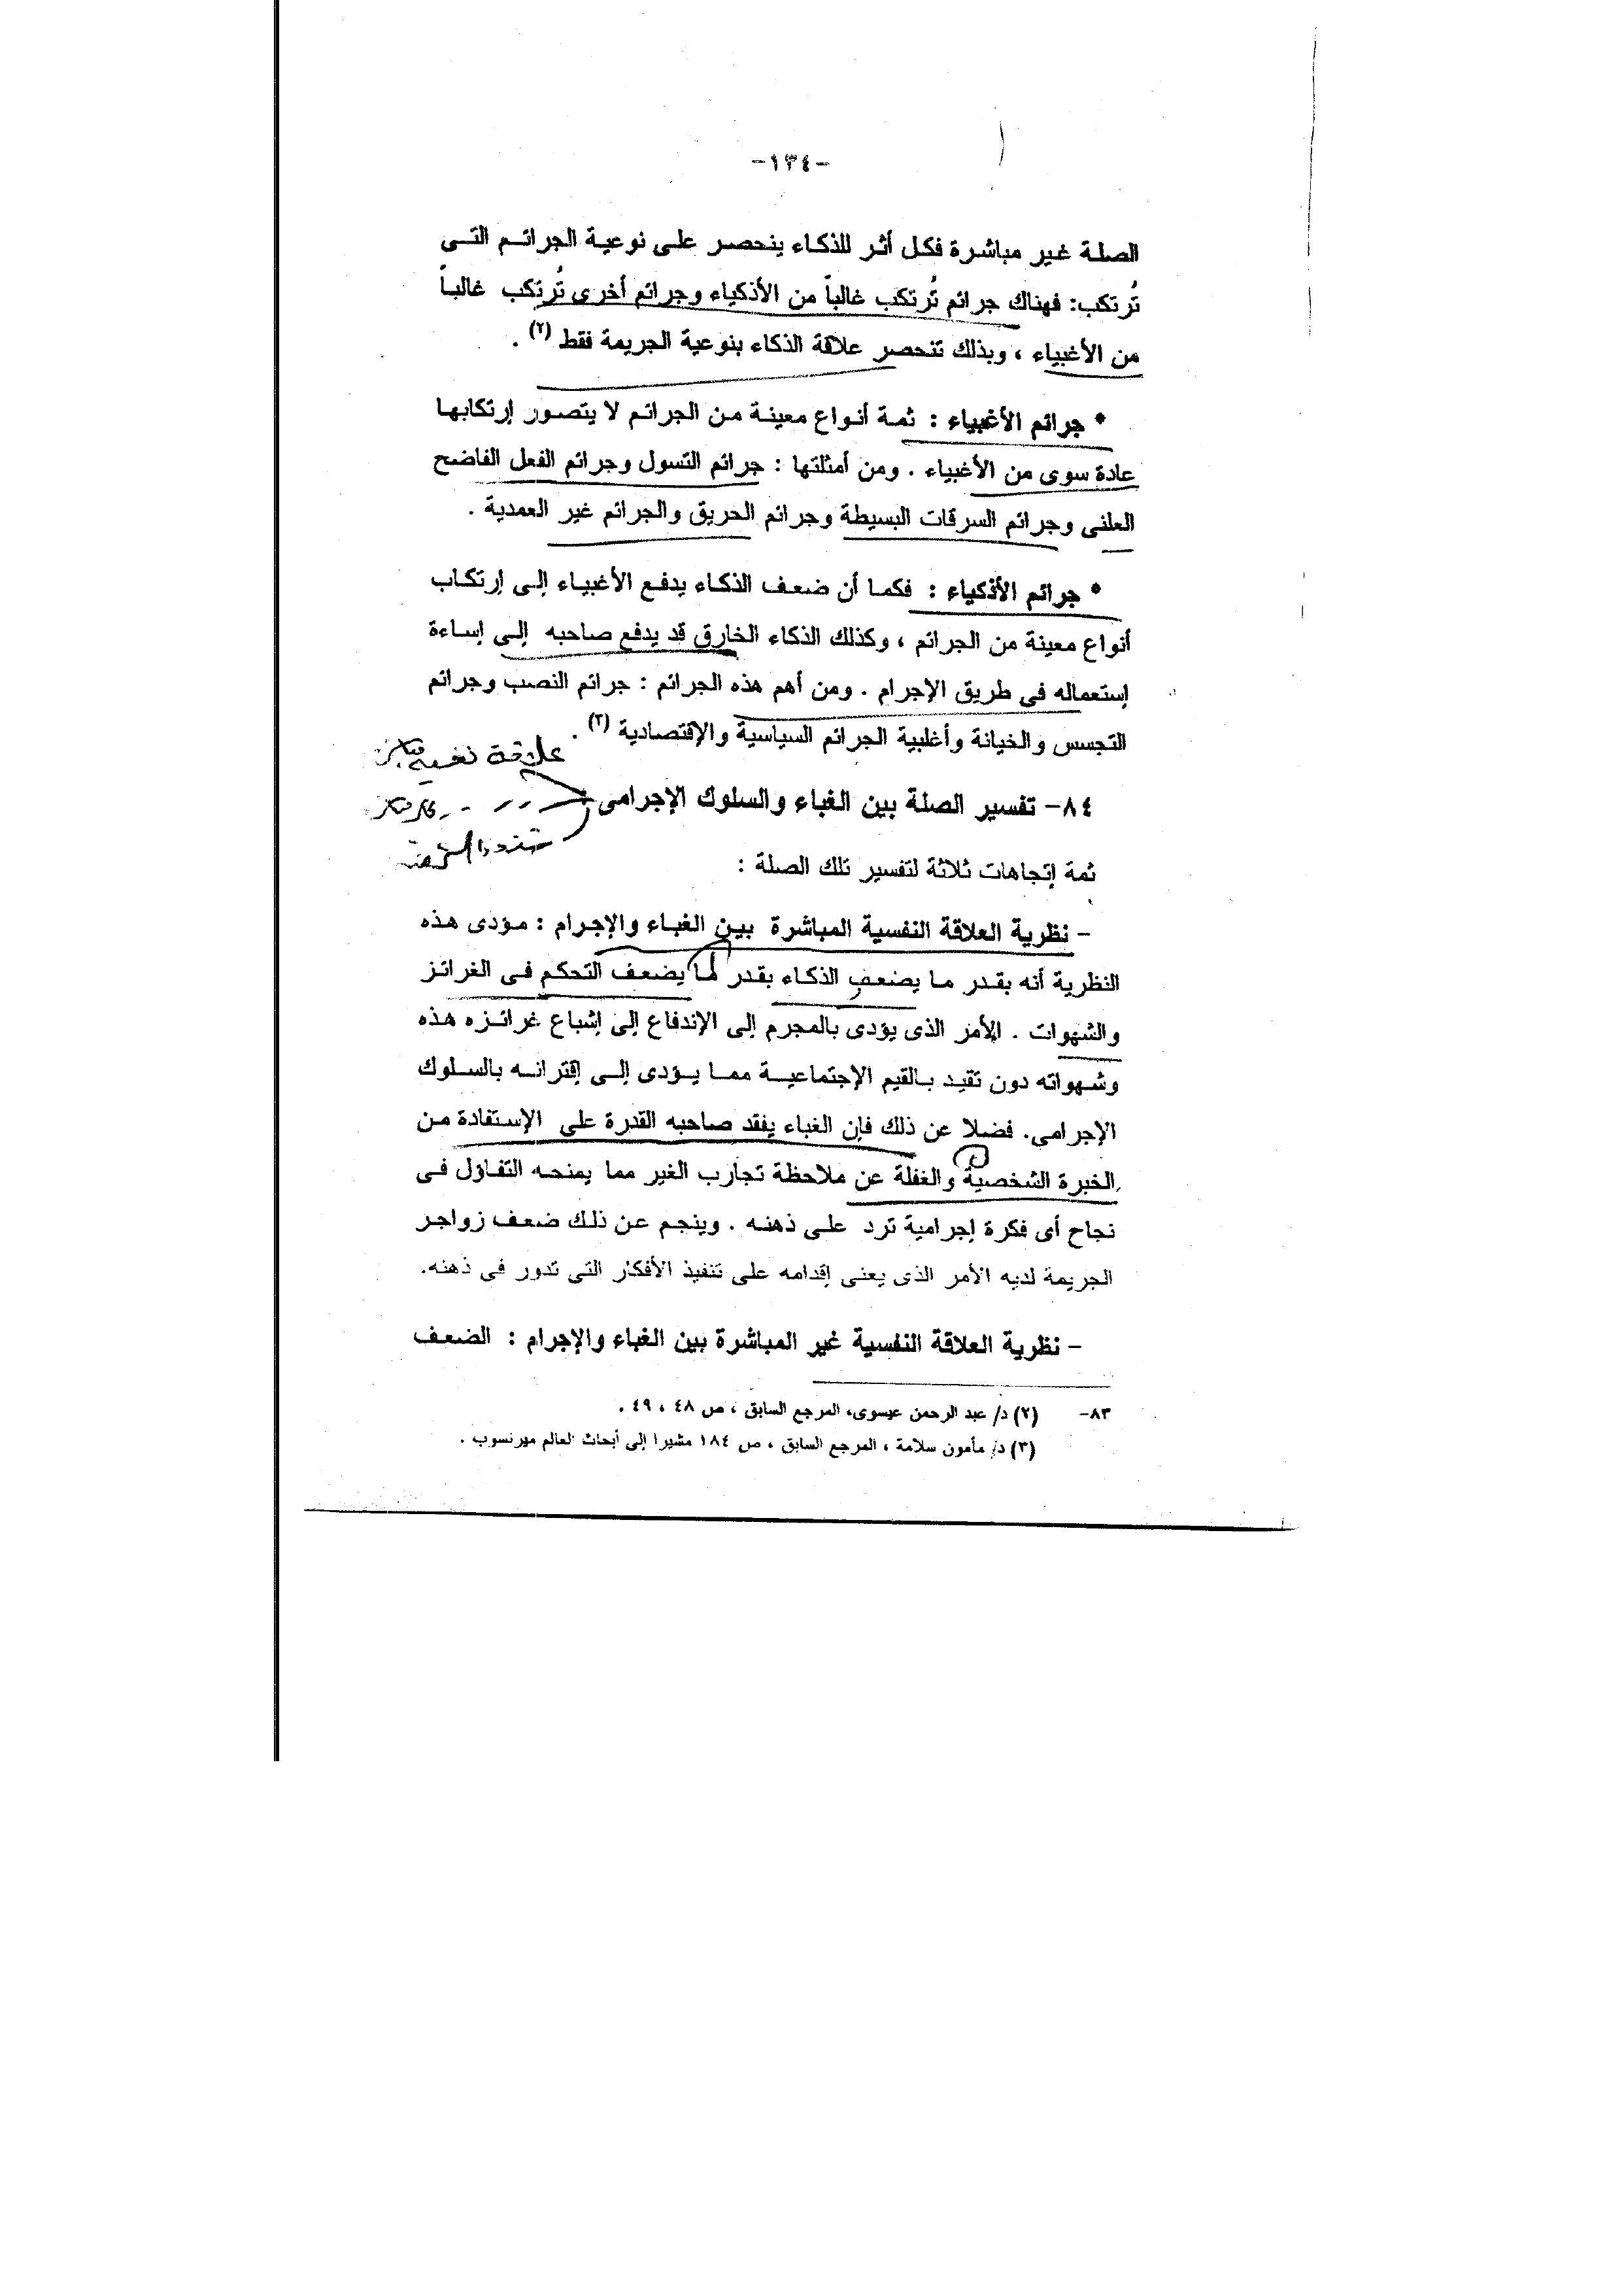 -١٣٤-
الصلة غير مباشرة فكل أثر للذكاء ينحصر على نوعية الجرائم التى
تُرتكب: فهناك جرائم تُرتكب غالباً من الأذكياء وجرائم أخرى تُرتكب غالباً
من الأغبياء ، وبذلك تنحصر علاقة الذكاء بنوعية الجريمة فقط (٢) .
* جرائم الأغبياء : ثمة أنواع معينة من الجرائم لا يتصور إرتكابها
عادة سوى من الأغبياء . ومن أمثلتها : جرائم التسول وجرائم الفعل الفاضح
العلنى وجرائم السرقات البسيطة وجرائم الحريق والجرائم غير العمدية .
* جرائم الأذكياء : فكما أن ضعف الذكاء يدفع الأغبياء إلى إرتكاب
أنواع معينة من الجرائم ، وكذلك الذكاء الخارق قد يدفع صاحبه إلى إساءة
إستعماله فى طريق الإجرام . ومن أهم هذه الجرائم : جرائم النصب وجرائم
التجسس والخيانة وأغلبية الجرائم السياسية والإقتصادية (٣) .
علاقة نفسية
٨٤- تفسير الصلة بين الغباء والسلوك الإجرامى
ثمة إتجاهات ثلاثة لتفسير تلك الصلة :
- نظرية العلاقة النفسية المباشرة بين الغباء والإجرام : مؤدى هذه
النظرية أنه بقدر ما يضعف الذكاء بقدر لما يضعف التحكم فى الغرائز
والشهوات . الأمر الذى يؤدى بالمجرم إلى الإندفاع إلى إشباع غرائزه هذه
وشهواته دون تقيد بالقيم الإجتماعية مما يؤدى إلى إقترانه بالسلوك
الإجرامى. فضلا عن ذلك فإن الغباء يفقد صاحبه القدرة على الإستفادة من
الخبرة الشخصية والغفلة عن ملاحظة تجارب الغير مما يمنحه التفاؤل فى
نجاح أى فكرة إجرامية ترد على ذهنه . وينجم عن ذلك ضعف زواجر
الجريمة لديه الأمر الذى يعنى إقدامه على تنفيذ الأفكار التى تدور فى ذهنه.
- نظرية العلاقة النفسية غير المباشرة بين الغباء والإجرام : الضعف
٨٣- (٢) د/ عبد الرحمن عيسوى، المرجع السابق ، ص ٤٨ ، ٤٩ .
(٣) د/ مأمون سلامة ، المرجع السابق ، ص ١٨٤ مشيرا إلى أبحاث العالم ميرنسوب .